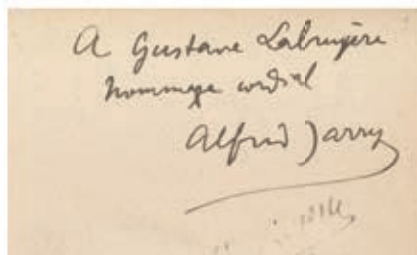 A Gustave Labruyère
hommage cordial
Alfred Jarry